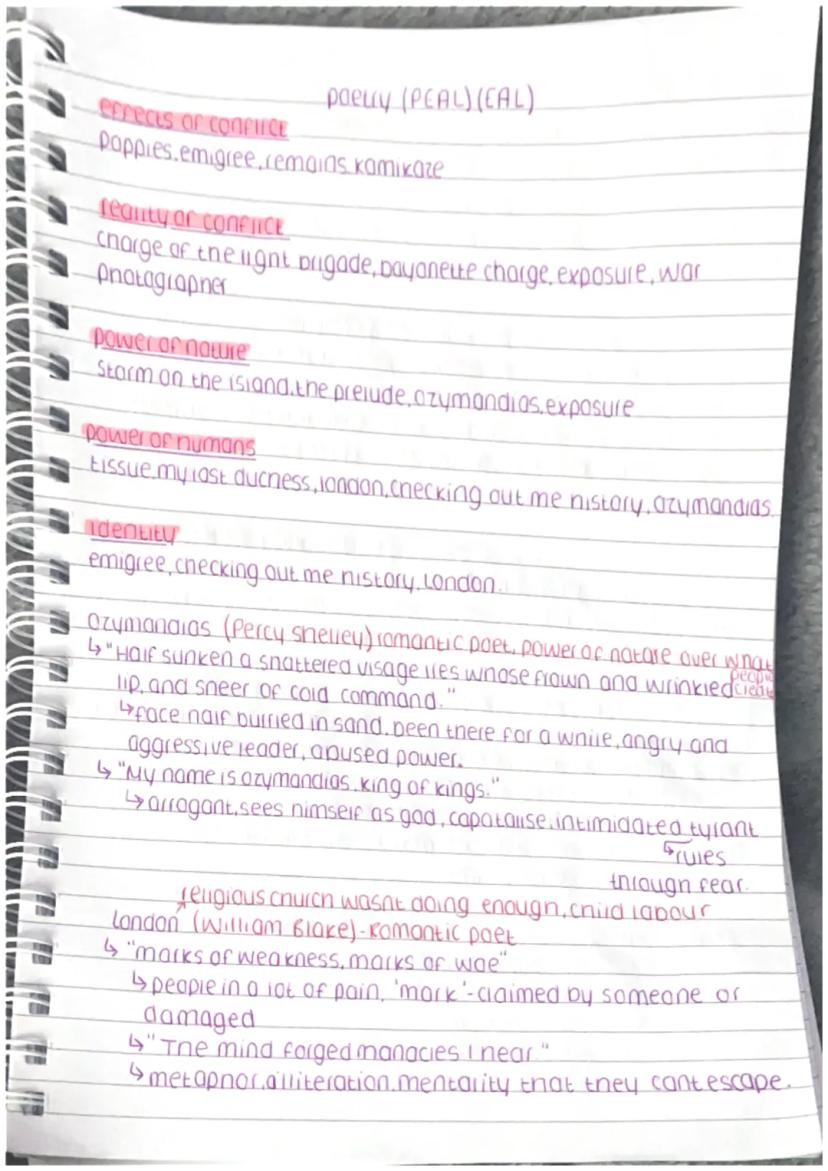 poetry (PEAL)(EAL)
effects of conflict
poppies, emigree, remains, kamikaze
reality of conflict
charge of the light brigade, bayonette charge, exposure, war
photographer
power of nature
Storm on the island, the prelude, ozymandias, exposure
power of humans
tissue, my last duchess, london, checking out me history, ozymandias.
identity
emigree, checking out me history, London.
ozymandias (Percy Shelley) romantic poet, power of nature over what
people
create
↳"Half sunken a shattered visage lies whose frown and wrinkled
lip, and sneer of cold command."
↳face half burried in sand, been there for a while, angry and
aggressive leader, abused power.
↳"My name is ozymandias, king of kings."
↳arrogant, sees himself as god, capatalise, intimidated tyrant
↳rules
through fear.
religious church wasnt doing enough, child labour
London (William Blake)-Romantic poet
↳"marks of weakness, marks of woe"
↳people in a lot of pain, 'mark'-claimed by someone or
damaged
↳"The mind forged manacles I hear."
↳metaphor, alliteration, mentality that they cant escape.